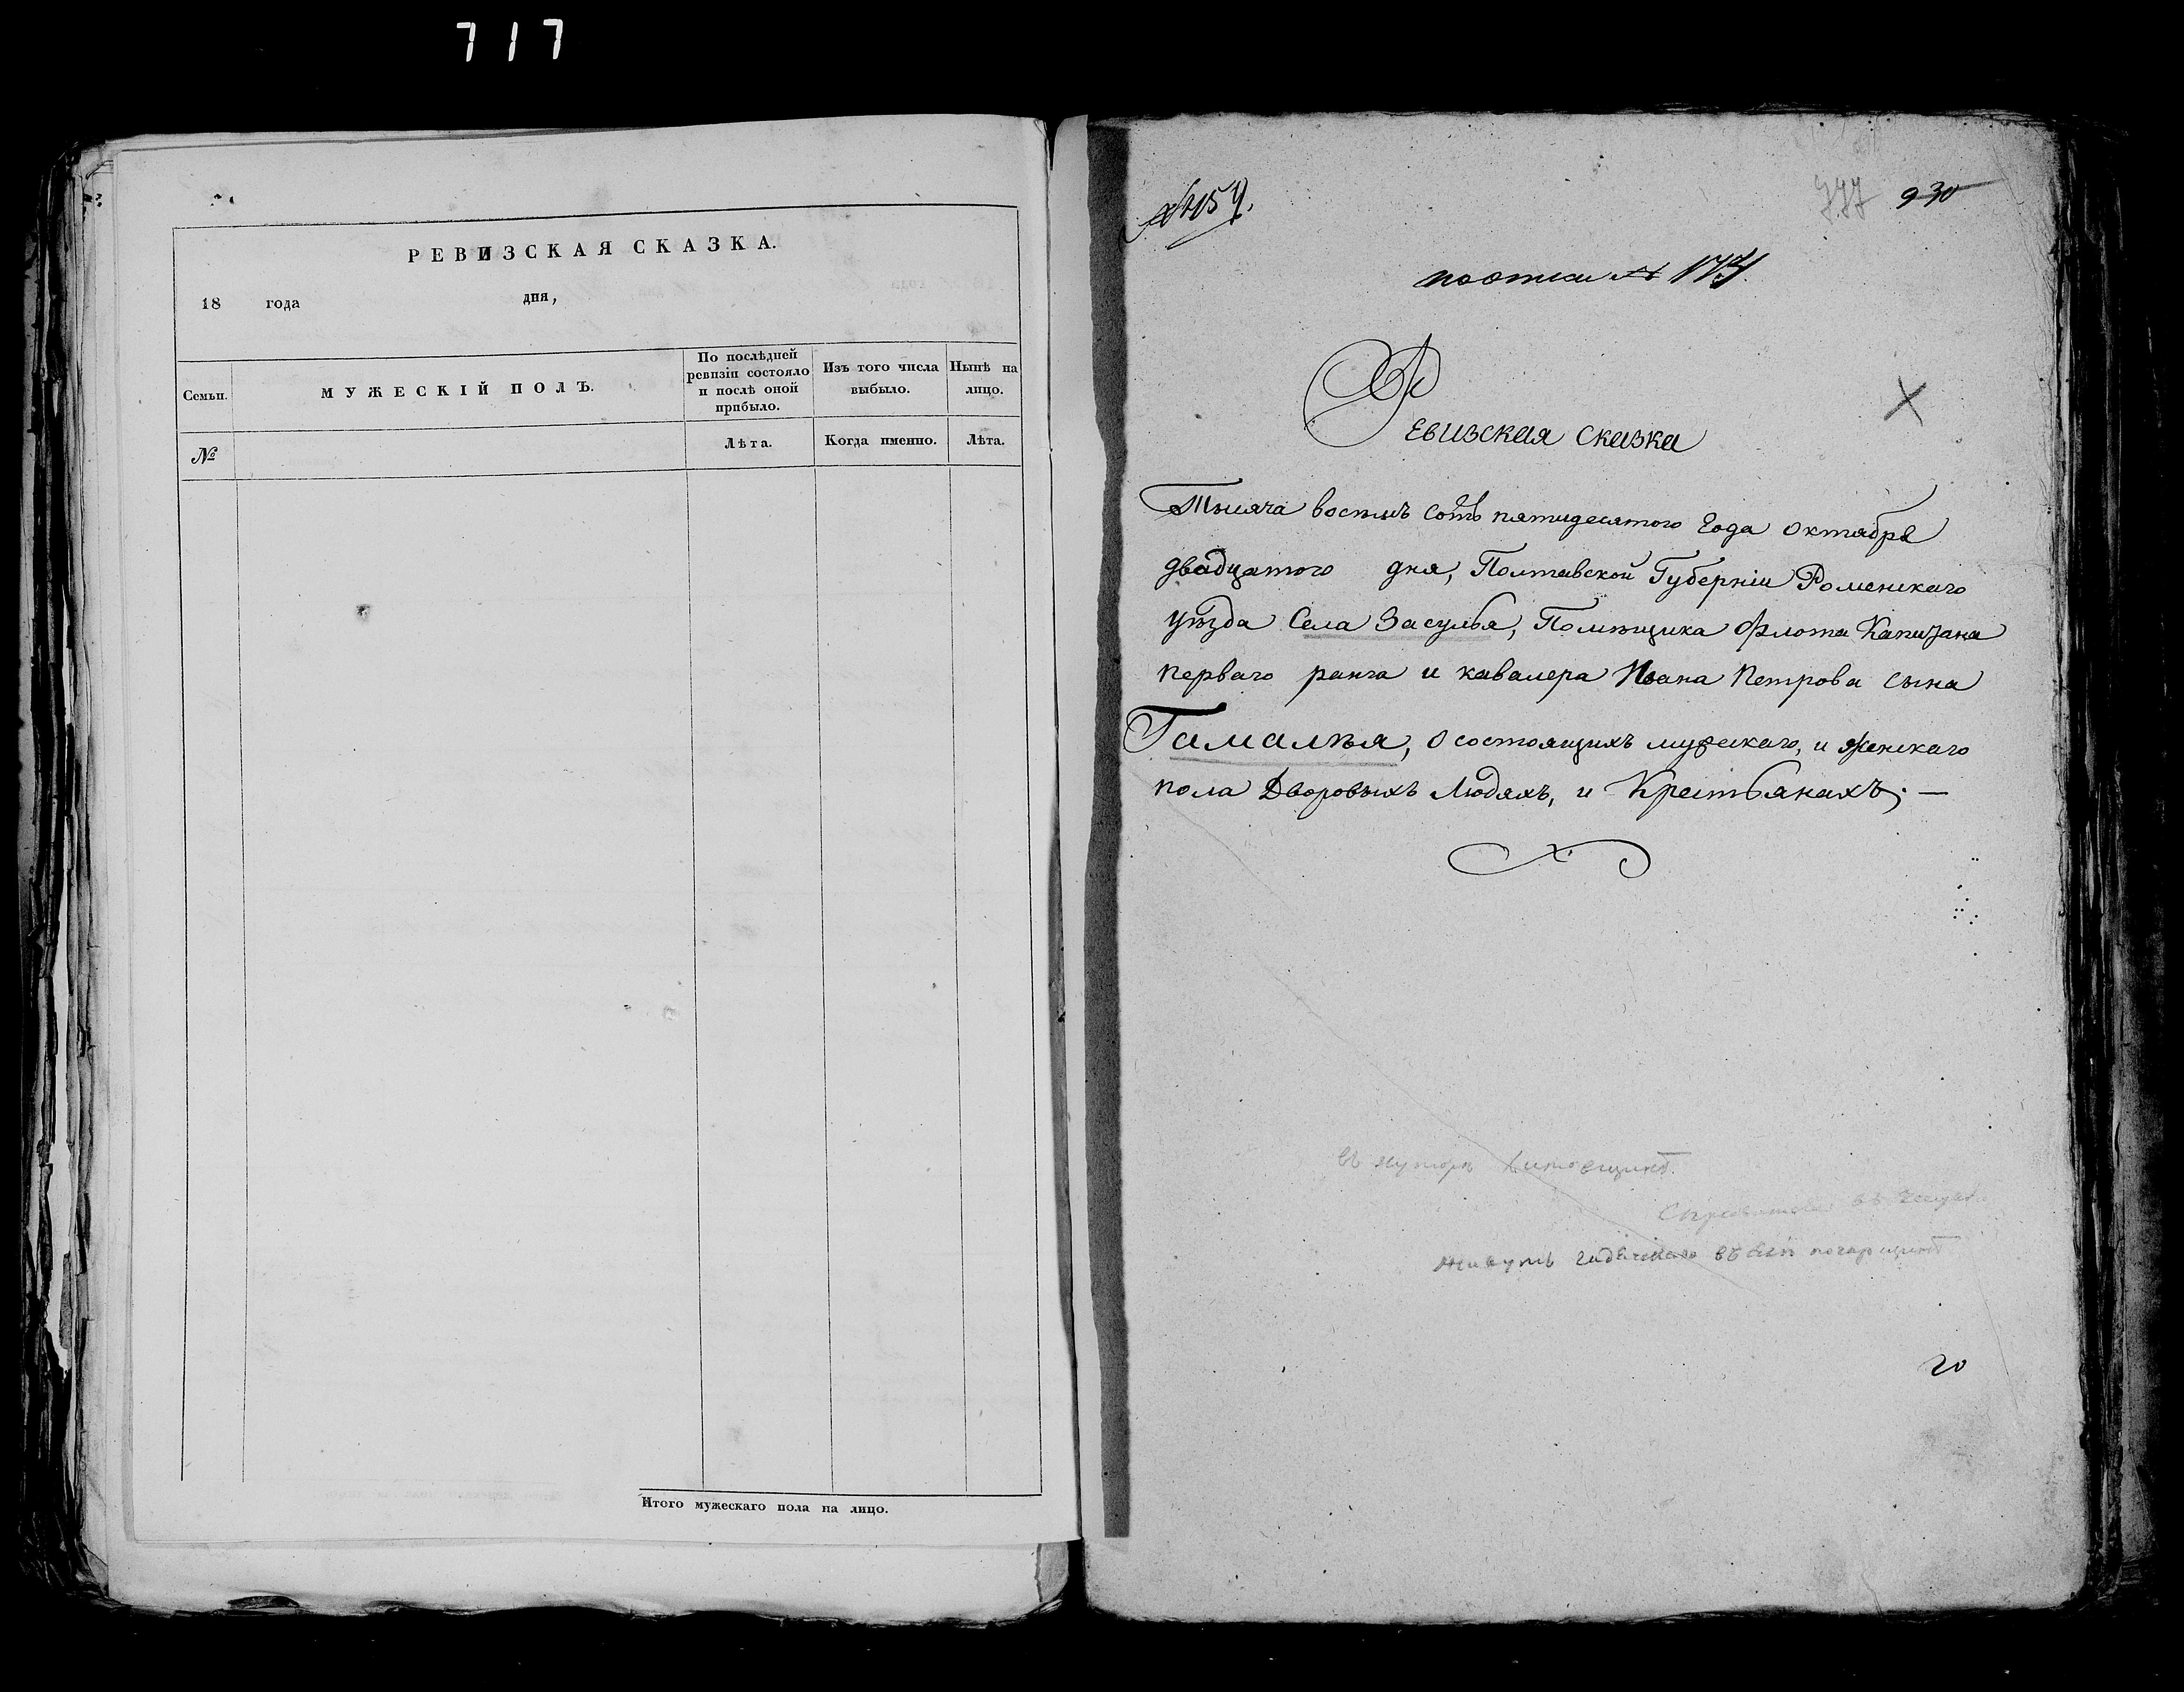 717
РЕВИЗСКАЯ СКАЗКА.
18 года дня,
Семьи.
МУЖЕСКІЙ ПОЛЪ.
По послѣдней ревизіи состояло и послѣ оной прибыло.
Изъ того числа выбыло.
Нынѣ на лицо.
№
Лѣта.
Когда именно.
Лѣта.
Итого мужескаго пола на лицо.
777 930
по описи №
Ревизская сказка
Тысяча восемь сотъ пятидесятого года октября
двадцатого дня, Полтавской Губерніи Роменскаго
уѣзда Села Засулья, Помѣщика Флота Капитана
перваго ранга и кавалера Ивана Петрова сына
Гамалѣя, о состоящихъ мужескаго, и женскаго
пола Дворовыхъ Людяхъ, и Крестьянахъ; —
въ хуторѣ
живутъ
20